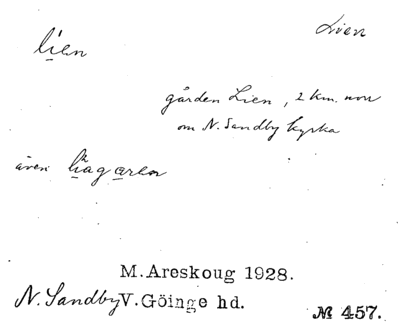 lien
Lien
gården Lien, 2 km. norr
om N. Sandby kyrka
även
M. Areskoug 1928.
N. Sandby V. Göinge hd.
№ 457.